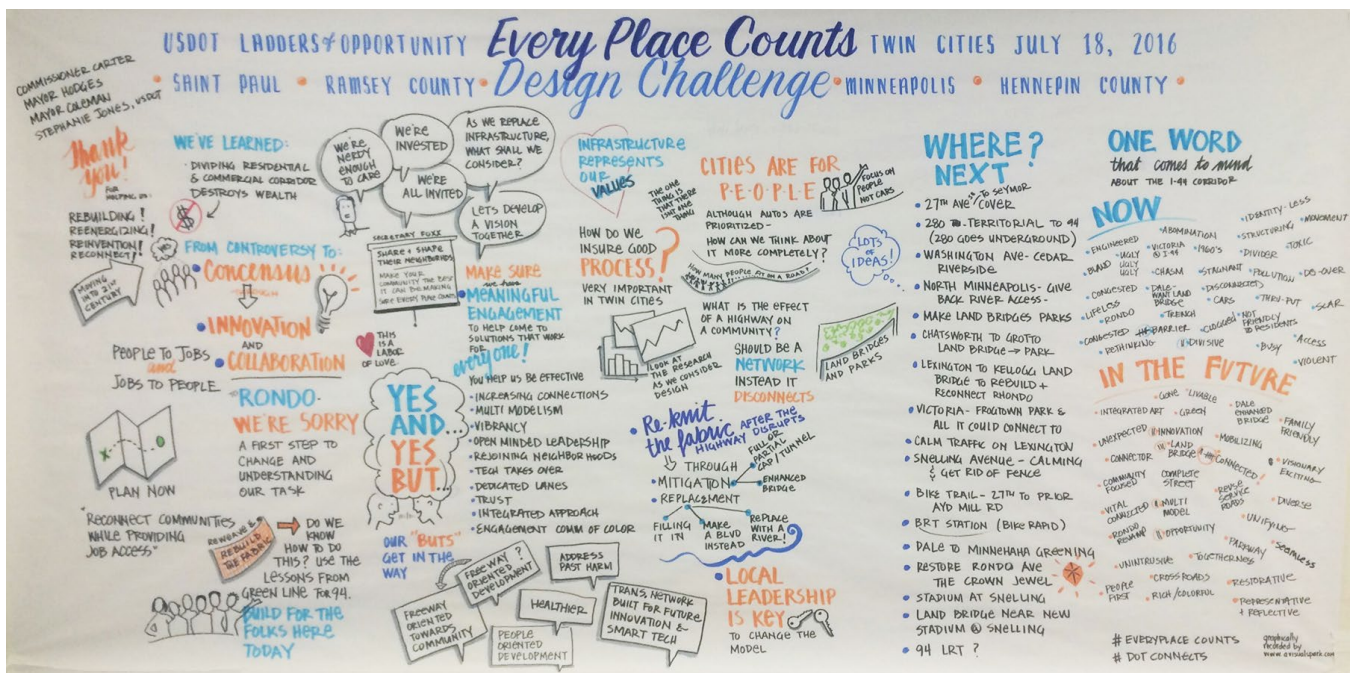 USDOT LADDERS of OPPORTUNITY Every Place Counts TWIN CITIES JULY 18, 2016
SAINT PAUL • RAMSEY COUNTY • Design Challenge • MINNEAPOLIS • HENNEPIN COUNTY •
COMMISSIONER CARTER
MAYOR HODGES
MAYOR COLEMAN
STEPHANIE JONES, USDOT
Thank
you!
FOR
HELPING US:
REBUILDING!
REENERGIZING!
REINVENTION!
RECONNECT!
MOVING
INTO 21ST
CENTURY
WE'VE LEARNED:
• DIVIDING RESIDENTIAL
& COMMERCIAL CORRIDOR
DESTROYS WEALTH
FROM CONTROVERSY TO:
• Concensus
• INNOVATION
AND
• COLLABORATION
PEOPLE TO JOBS
and
JOBS TO PEOPLE
RONDO-
WE'RE SORRY
A FIRST STEP TO
CHANGE AND
UNDERSTANDING
OUR TASK
PLAN NOW
"RECONNECT COMMUNITIES
WHILE PROVIDING
JOB ACCESS"
REWEAVE &
REBUILD
THE FABRIC
DO WE
KNOW
HOW TO DO
THIS? USE THE
LESSONS FROM
GREEN LINE FOR 94.
BUILD FOR THE
FOLKS HERE
TODAY
WE'RE
NERDY
ENOUGH
TO CARE
WE'RE
INVESTED
WE'RE
ALL INVITED
AS WE REPLACE
INFRASTRUCTURE,
WHAT SHALL WE
CONSIDER?
LETS DEVELOP
A VISION
TOGETHER
SECRETARY FOXX
SHARE & SHAPE
THEIR NEIGHBORHOODS
MAKE YOUR
COMMUNITY THE BEST
IT CAN BE, MAKING
SURE EVERY PLACE COUNTS
THIS
IS A
LABOR
OF LOVE
MAKE SURE
we have
• MEANINGFUL
ENGAGEMENT
TO HELP COME TO
SOLUTIONS THAT WORK
FOR
everyone!
YOU HELP US BE EFFECTIVE
• INCREASING CONNECTIONS
• MULTI MODELISM
• VIBRANCY
• OPEN MINDED LEADERSHIP
• REJOINING NEIGHBORHOODS
• TECH TAKES OVER
• DEDICATED LANES
• TRUST
• INTEGRATED APPROACH
• ENGAGEMENT COMM OF COLOR
YES
AND...
YES
BUT...
OUR "BUTS"
GET IN THE
WAY
FREEWAY ?
ORIENTED
DEVELOPMENT
FREEWAY
ORIENTED
TOWARDS
COMMUNITY
ADDRESS
PAST HARM
HEALTHIER
PEOPLE
ORIENTED
DEVELOPMENT
TRANS. NETWORK
BUILT FOR FUTURE
INNOVATION &
SMART TECH
INFRASTRUCTURE
REPRESENTS
OUR
VALUES
THE ONE
THING IS
THAT THERE
ISNT ONE
THING
HOW DO WE
INSURE GOOD
PROCESS?
VERY IMPORTANT
IN TWIN CITIES
LOOK AT
THE RESEARCH
AS WE CONSIDER
DESIGN
CITIES ARE FOR
P·E·O·P·L·E
FOCUS ON
PEOPLE
NOT CARS
ALTHOUGH AUTOS ARE
PRIORITIZED-
HOW CAN WE THINK ABOUT
IT MORE COMPLETELY?
HOW MANY PEOPLE FIT ON A ROAD?
LOTS
OF
IDEAS!
WHAT IS THE EFFECT
OF A HIGHWAY ON
A COMMUNITY?
SHOULD BE A
NETWORK
INSTEAD IT
DISCONNECTS
LAND BRIDGES
AND PARKS
• Re-knit
the fabric AFTER THE
HIGHWAY DISRUPTS
THROUGH
• MITIGATION
FULL OR
PARTIAL
CAP/TUNNEL
ENHANCED
BRIDGE
• REPLACEMENT
FILLING
IT IN
MAKE
A BLVD
INSTEAD
REPLACE
WITH A
RIVER!
• LOCAL
LEADERSHIP
IS KEY
TO CHANGE THE
MODEL
WHERE?
NEXT
• 27TH AVE TO SEYMOR
COVER
• 280 TERRITORIAL TO 94
(280 GOES UNDERGROUND)
• WASHINGTON AVE- CEDAR
RIVERSIDE
• NORTH MINNEAPOLIS- GIVE
BACK RIVER ACCESS-
• MAKE LAND BRIDGES PARKS
• CHATSWORTH TO GROTTO
LAND BRIDGE → PARK
• LEXINGTON TO KELLOGG LAND
BRIDGE TO REBUILD +
RECONNECT RHONDO
• VICTORIA- FROGTOWN PARK &
ALL IT COULD CONNECT TO
• CALM TRAFFIC ON LEXINGTON
• SNELLING AVENUE- CALMING
& GET RID OF FENCE
• BIKE TRAIL- 27TH TO PRIOR
AYD MILL RD
• BRT STATION (BIKE RAPID)
• DALE TO MINNEHAHA GREENING
• RESTORE RONDO AVE
THE CROWN JEWEL
• STADIUM AT SNELLING
• LAND BRIDGE NEAR NEW
STADIUM @ SNELLING
• 94 LRT ?
ONE WORD
that comes to mind
ABOUT THE I-94 CORRIDOR
NOW
• IDENTITY-LESS
• ABOMINATION
STRUCTURING
• MOVEMENT
• ENGINEERED
• VICTORIA
@ I-94
• 1960's
• DIVIDER
TOXIC
• BLAND
• UGLY
UGLY
UGLY
• CHASM
• STAGNANT
• POLLUTION
• DO-OVER
• CONGESTED
• DALE-
WANT LAND
BRIDGE
• DISCONNECTED
• LIFELESS
• CARS
• THRU-PUT
• SCAR
• RONDO
• TRENCH
• CONGESTED
BARRIER
• CLOGGED
• NOT
FRIENDLY
TO RESIDENTS
• RETHINKING
DIVISIVE
• BUSY
• ACCESS
• VIOLENT
IN THE FUTURE
• GONE
"LIVABLE
• INTEGRATED ART
• GREEN
• DALE
ENHANCED
BRIDGE
• FAMILY
FRIENDLY
• UNEXPECTED
INNOVATION
• MOBILIZING
• CONNECTOR
LAND
BRIDGE
CONNECTED!
VISIONARY
EXCITING
• COMMUNITY
FOCUSED
COMPLETE
STREET
• REUSE
SERVICE
ROADS
• DIVERSE
• VITAL
CONNECTED
MULTI
MODEL
• UNIFYING
• RONDO
REVAMP
OPPORTUNITY
• PARKWAY
• SEAMLESS
• UNINTRUSIVE
• TOGETHERNESS
• PEOPLE
FIRST
• CROSSROADS
• RICH/COLORFUL
• RESTORATIVE
• REPRESENTATIVE
+ REFLECTIVE
# EVERYPLACE COUNTS
# DOT CONNECTS
graphically
recorded by
www.avisualspark.com